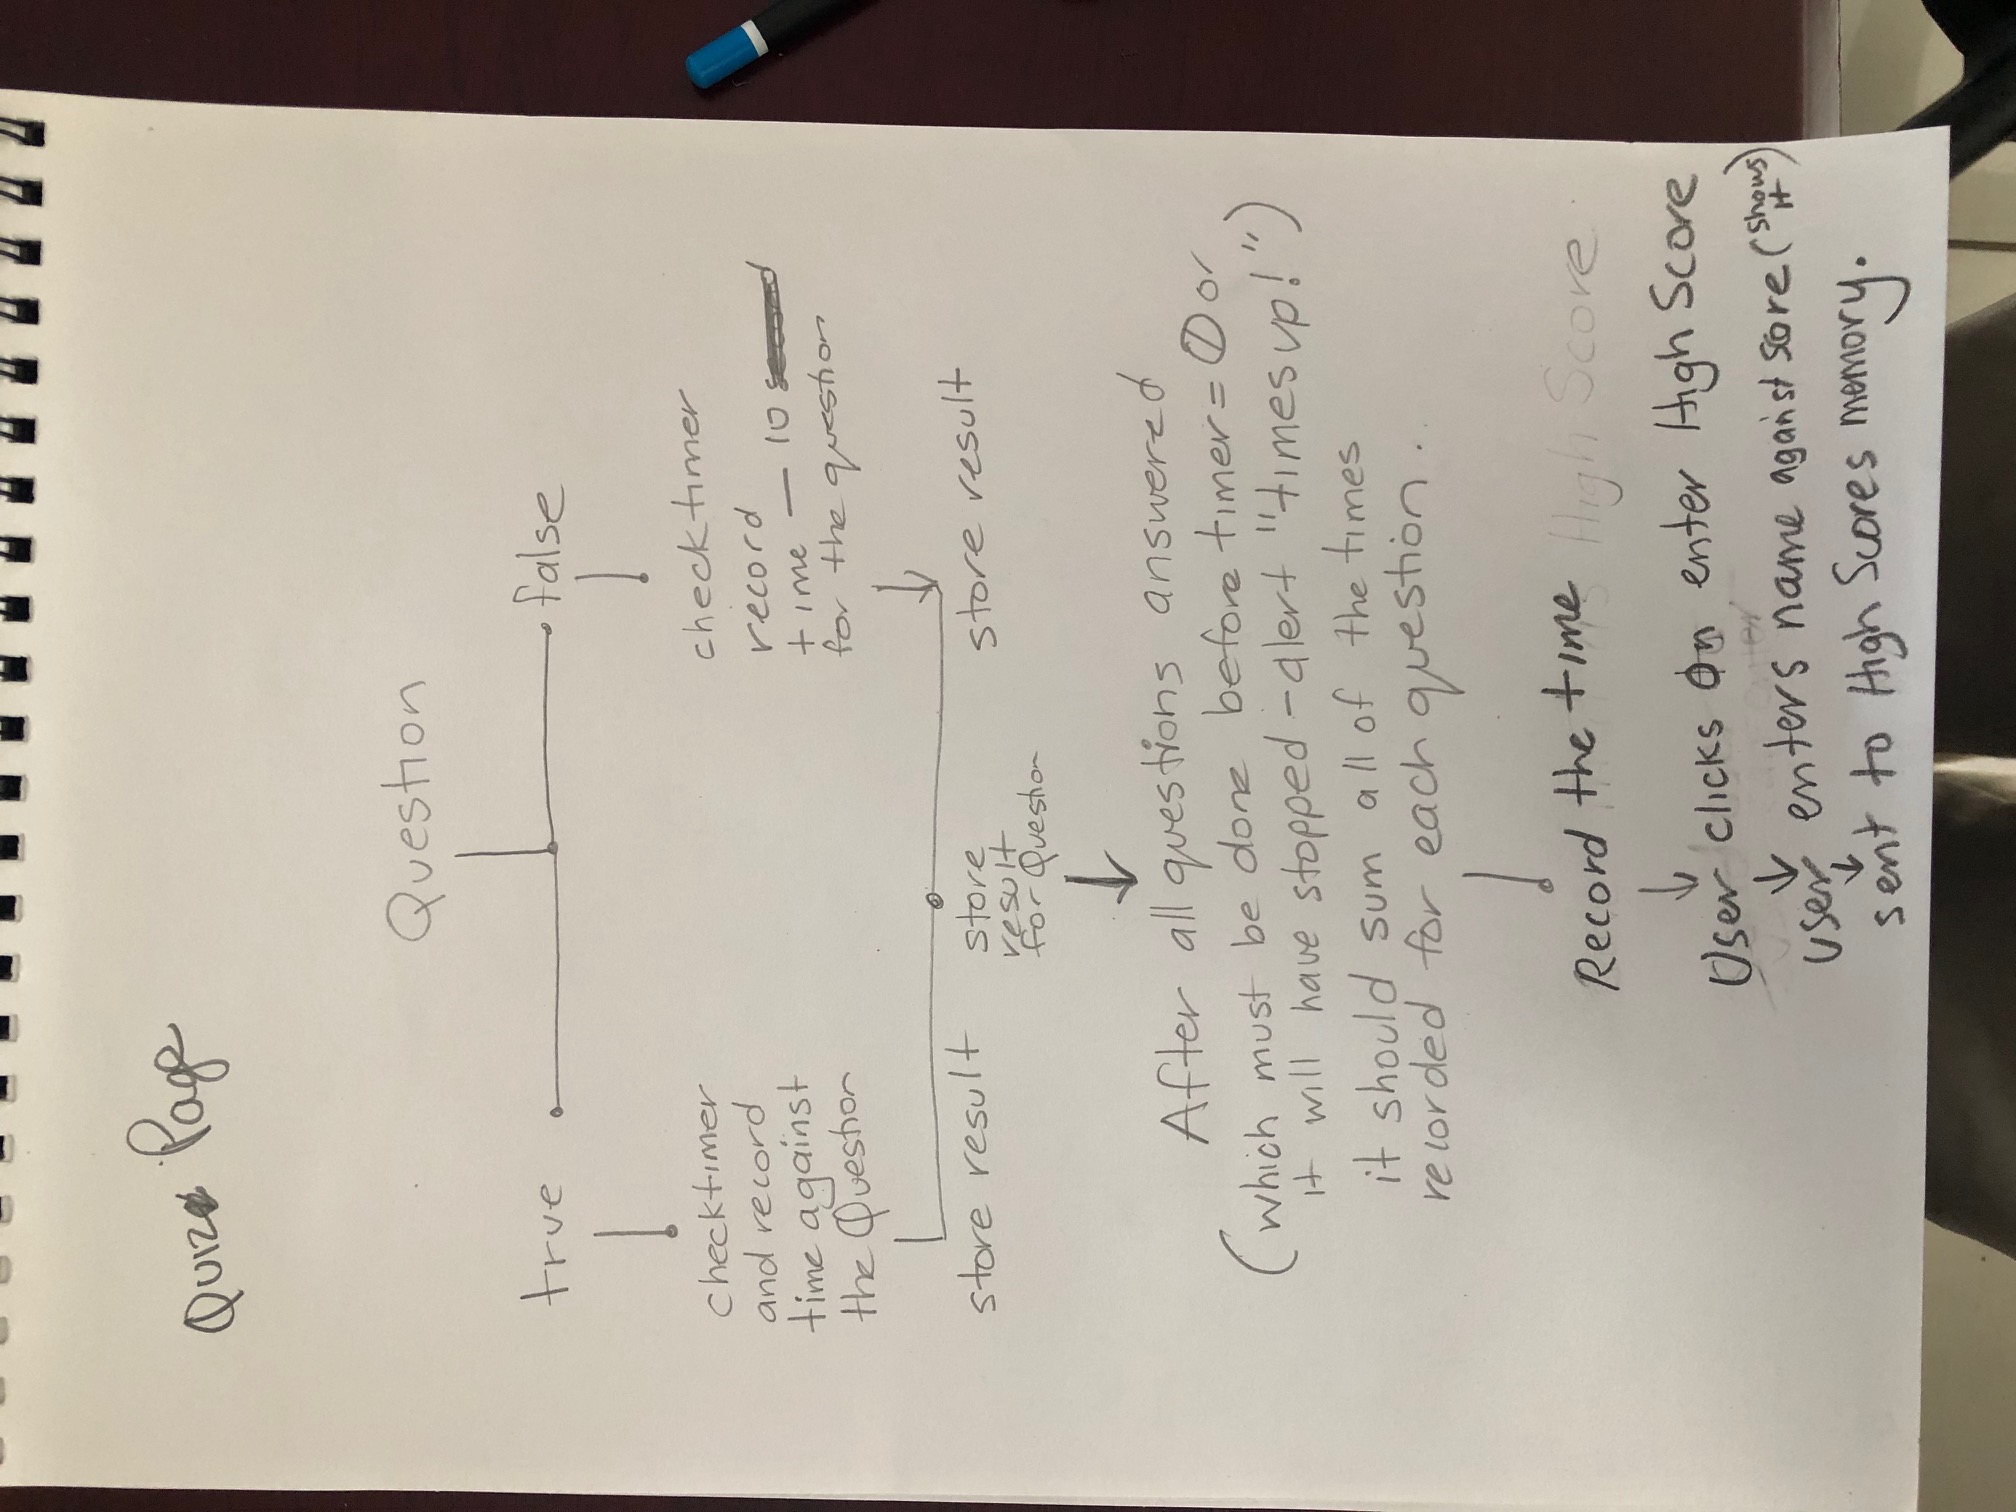 Quiz Page
Question
true
false
check timer
and record
time against
the Question
check timer
record
time — 10
for the question
store result
store
result
for Question
store result
After all questions answered
(which must be done before timer = 0 or
it will have stopped - alert "times up!")
it should sum all of the times
recorded for each question.
Record the time High Score
User clicks on enter High Score
user enters name against score (shows it)
sent to High Scores memory.